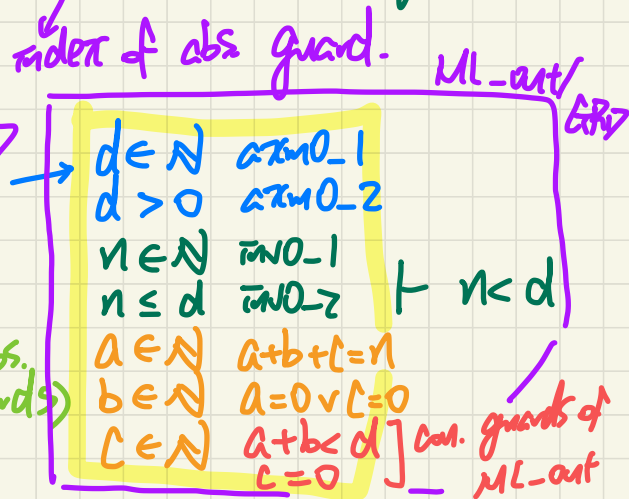 index of abs guard.
ML_out/GRD
d ∈ ℕ axm0_1
d > 0 axm0_2
n ∈ ℕ inv0_1
n ≤ d inv0_2 ⊢ n < d
a ∈ ℕ a+b+c=n
b ∈ ℕ a=0 ∨ c=0
c ∈ ℕ a+b<d
c=0
con. guards of
ML_out